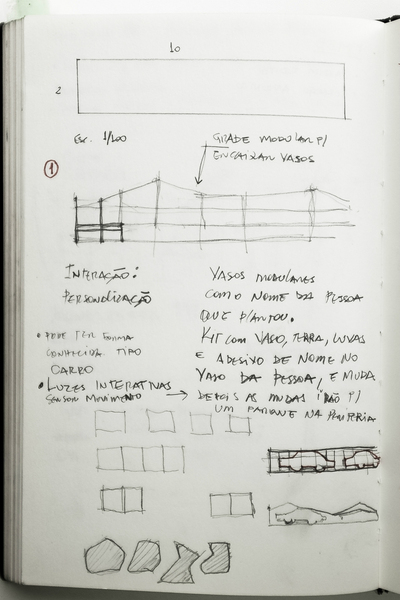 10
2
Esc. 1/200
GRADE MODULAR P/
ENCAIXAR VASOS
1
INTERAÇÃO:
PERSONALIZAÇÃO
VASOS MODULARES
COM O NOME DA PESSOA
QUE PLANTOU.
KIT COM VASO, TERRA, LUVAS
E ADESIVO DE NOME NO
VASO DA PESSOA, E MUDA
DEPOIS AS MUDAS IRÃO P/
UM PARQUE NA PERIFERIA
• PODE TER FORMA
CONHECIDA. TIPO
CARRO
• LUZES INTERATIVAS
SENSOR MOVIMENTO